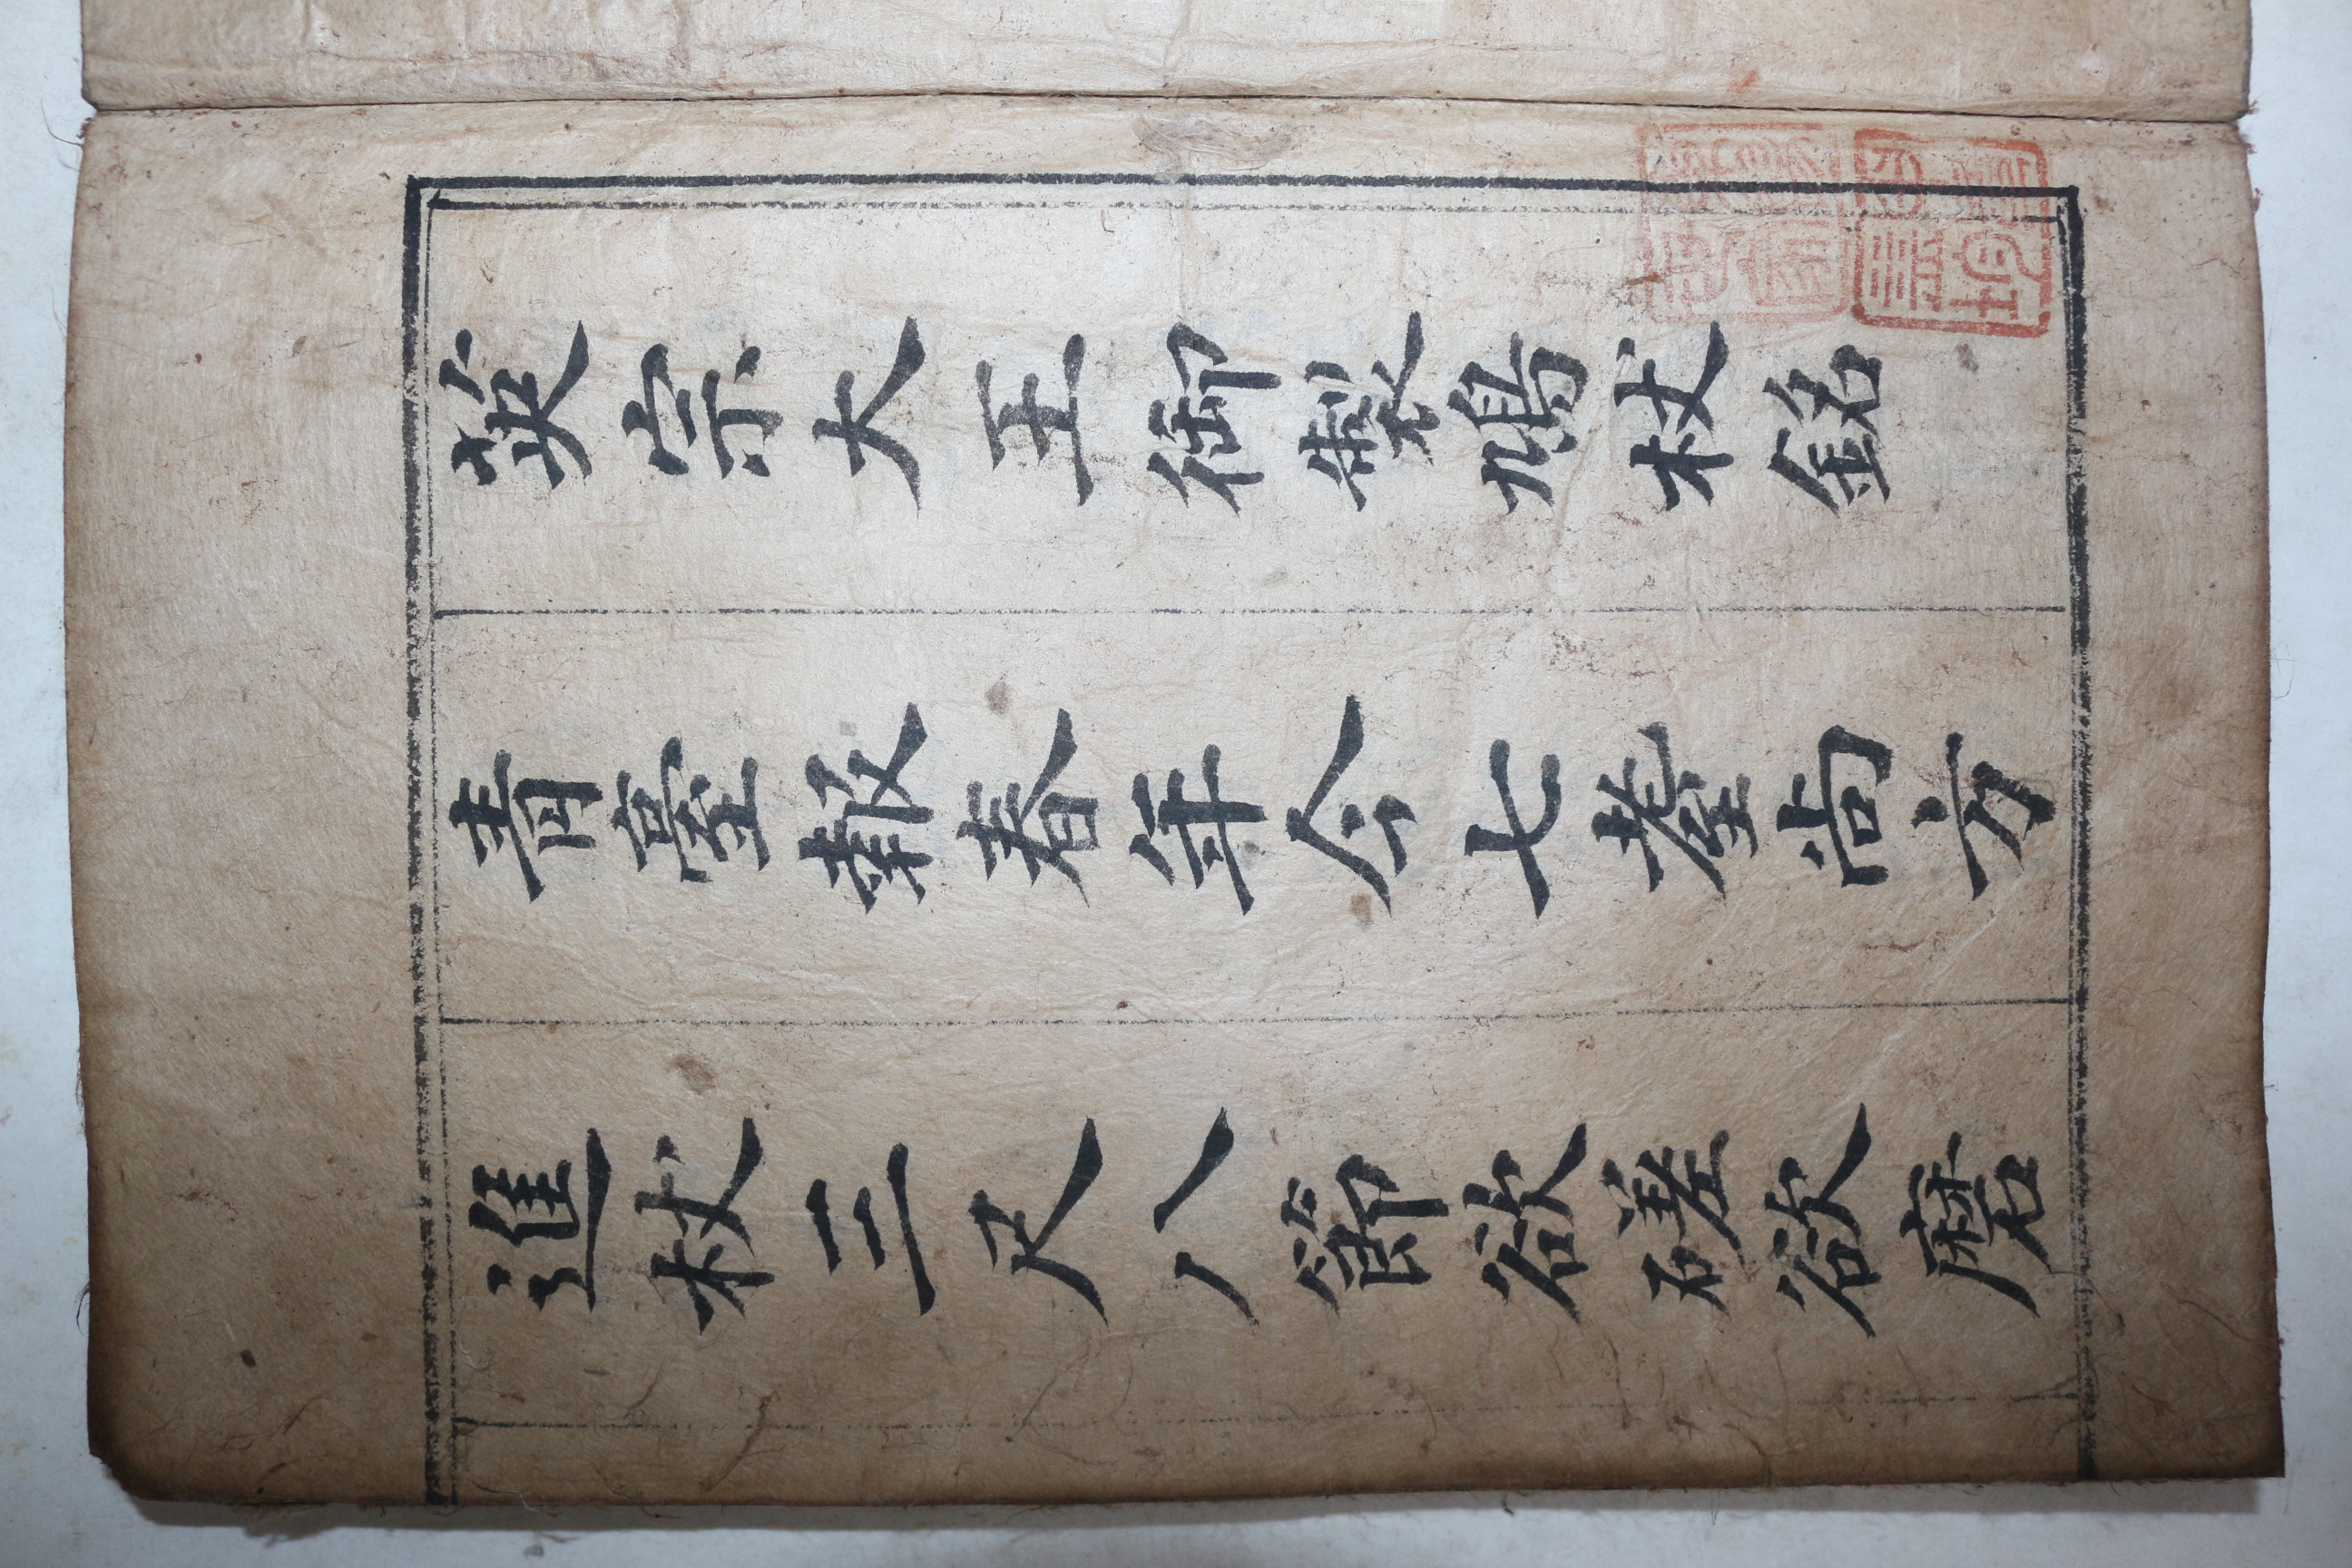 英宗大王御製鳩杖銘
青臺報春年今七耋尙方
進杖三尺八節欲磋欲磨